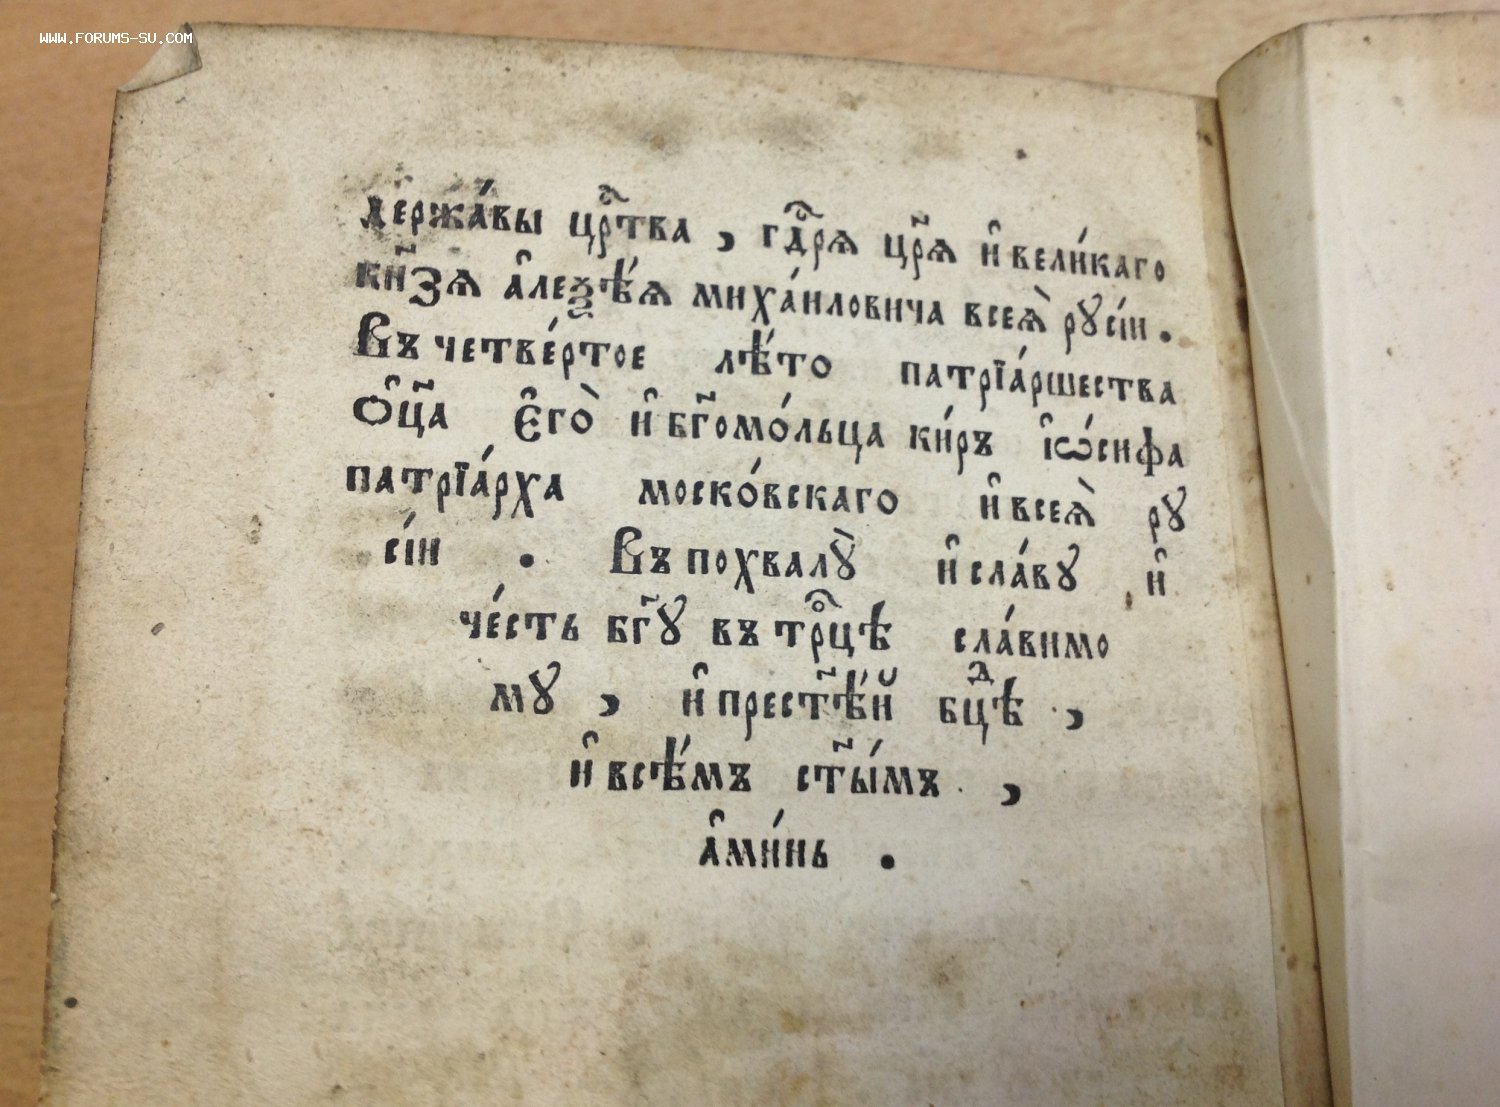 WWW.FORUMS-SU.COM
держа́вы црⷭ҇тва , гдⷭ҇рѧ цр҃ѧ и҆ вели́каго
кн҃зѧ а҆леѯѣ́ѧ миха́иловича всеѧ̀ рꙋсі́и .
Въ четве́ртое лѣ́то патрїа́ршества
Ѻ҆ц҃а є҆гѡ̀ и҆ бг҃омо́льца ки́ръ і҆ѡ́сифа
патрїа́рха моско́вскаго и҆ всеѧ̀ рꙋ
сі́и . Въ похвалꙋ̀ и҆ сла́вꙋ и҆
че́сть бг҃ꙋ въ трⷪ҇цѣ сла́вимо
мꙋ , и҆ прест҃ѣ́й бцⷣѣ ,
и҆ всѣ́мъ ст҃ы́мъ ,
а҆ми́нь .